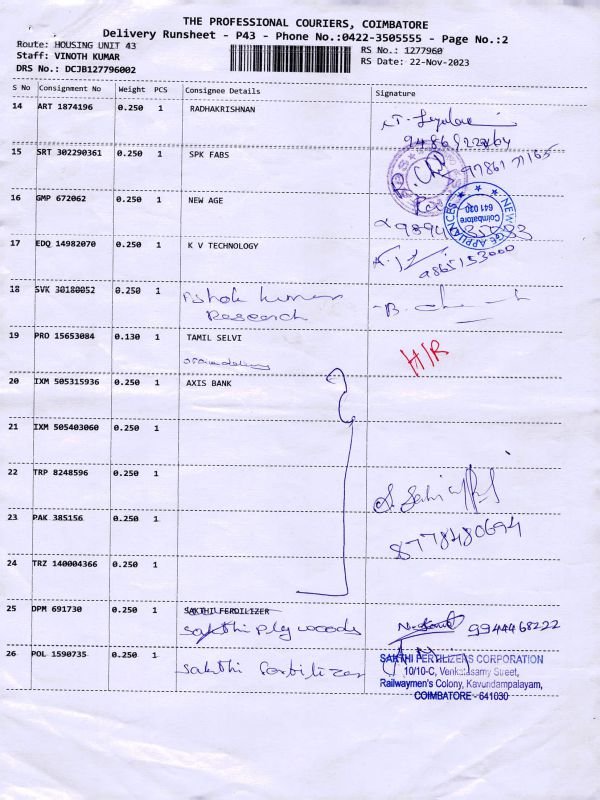 THE PROFESSIONAL COURIERS, COIMBATORE
Delivery Runsheet - P43 - Phone No.:0422-3505555 - Page No.:2
Route: HOUSING UNIT 43
Staff: VINOTH KUMAR
DRS No.: DCJB127796002
RS No.: 1277960
RS Date: 22-Nov-2023
S No Consignment No Weight PCS Consignee Details Signature
14 ART 1874196 0.250 1 RADHAKRISHNAN
15 SRT 302290361 0.250 1 SPK FABS
16 GMP 672062 0.250 1 NEW AGE
NEW AGE APPLIANCES
Coimbatore
641 030
17 EDQ 14982070 0.250 1 K V TECHNOLOGY
9865153000
18 SVK 30180052 0.250 1 Ashok kumar
Research
19 PRO 15653084 0.130 1 TAMIL SELVI H/R
20 IXM 505315936 0.250 1 AXIS BANK
21 IXM 505403060 0.250 1
22 TRP 8248596 0.250 1
23 PAK 385156 0.250 1
8778480694
24 TRZ 140004366 0.250 1
25 DPM 691730 0.250 1 SAKTHI FERDILIZER
Sakthi Plywoods 9944468222
26 POL 1590735 0.250 1 Sakthi Ferbilizer
SAKTHI FERTILIZERS CORPORATION
10/10-C, Venkatasamy Street,
Railwaymen's Colony, Kavundampalayam,
COIMBATORE - 641030